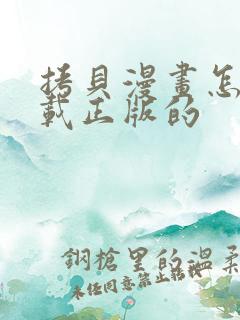 拷貝漫畫怎
載正版的
鋼槍里的溫柔
未任同意禁止轉載